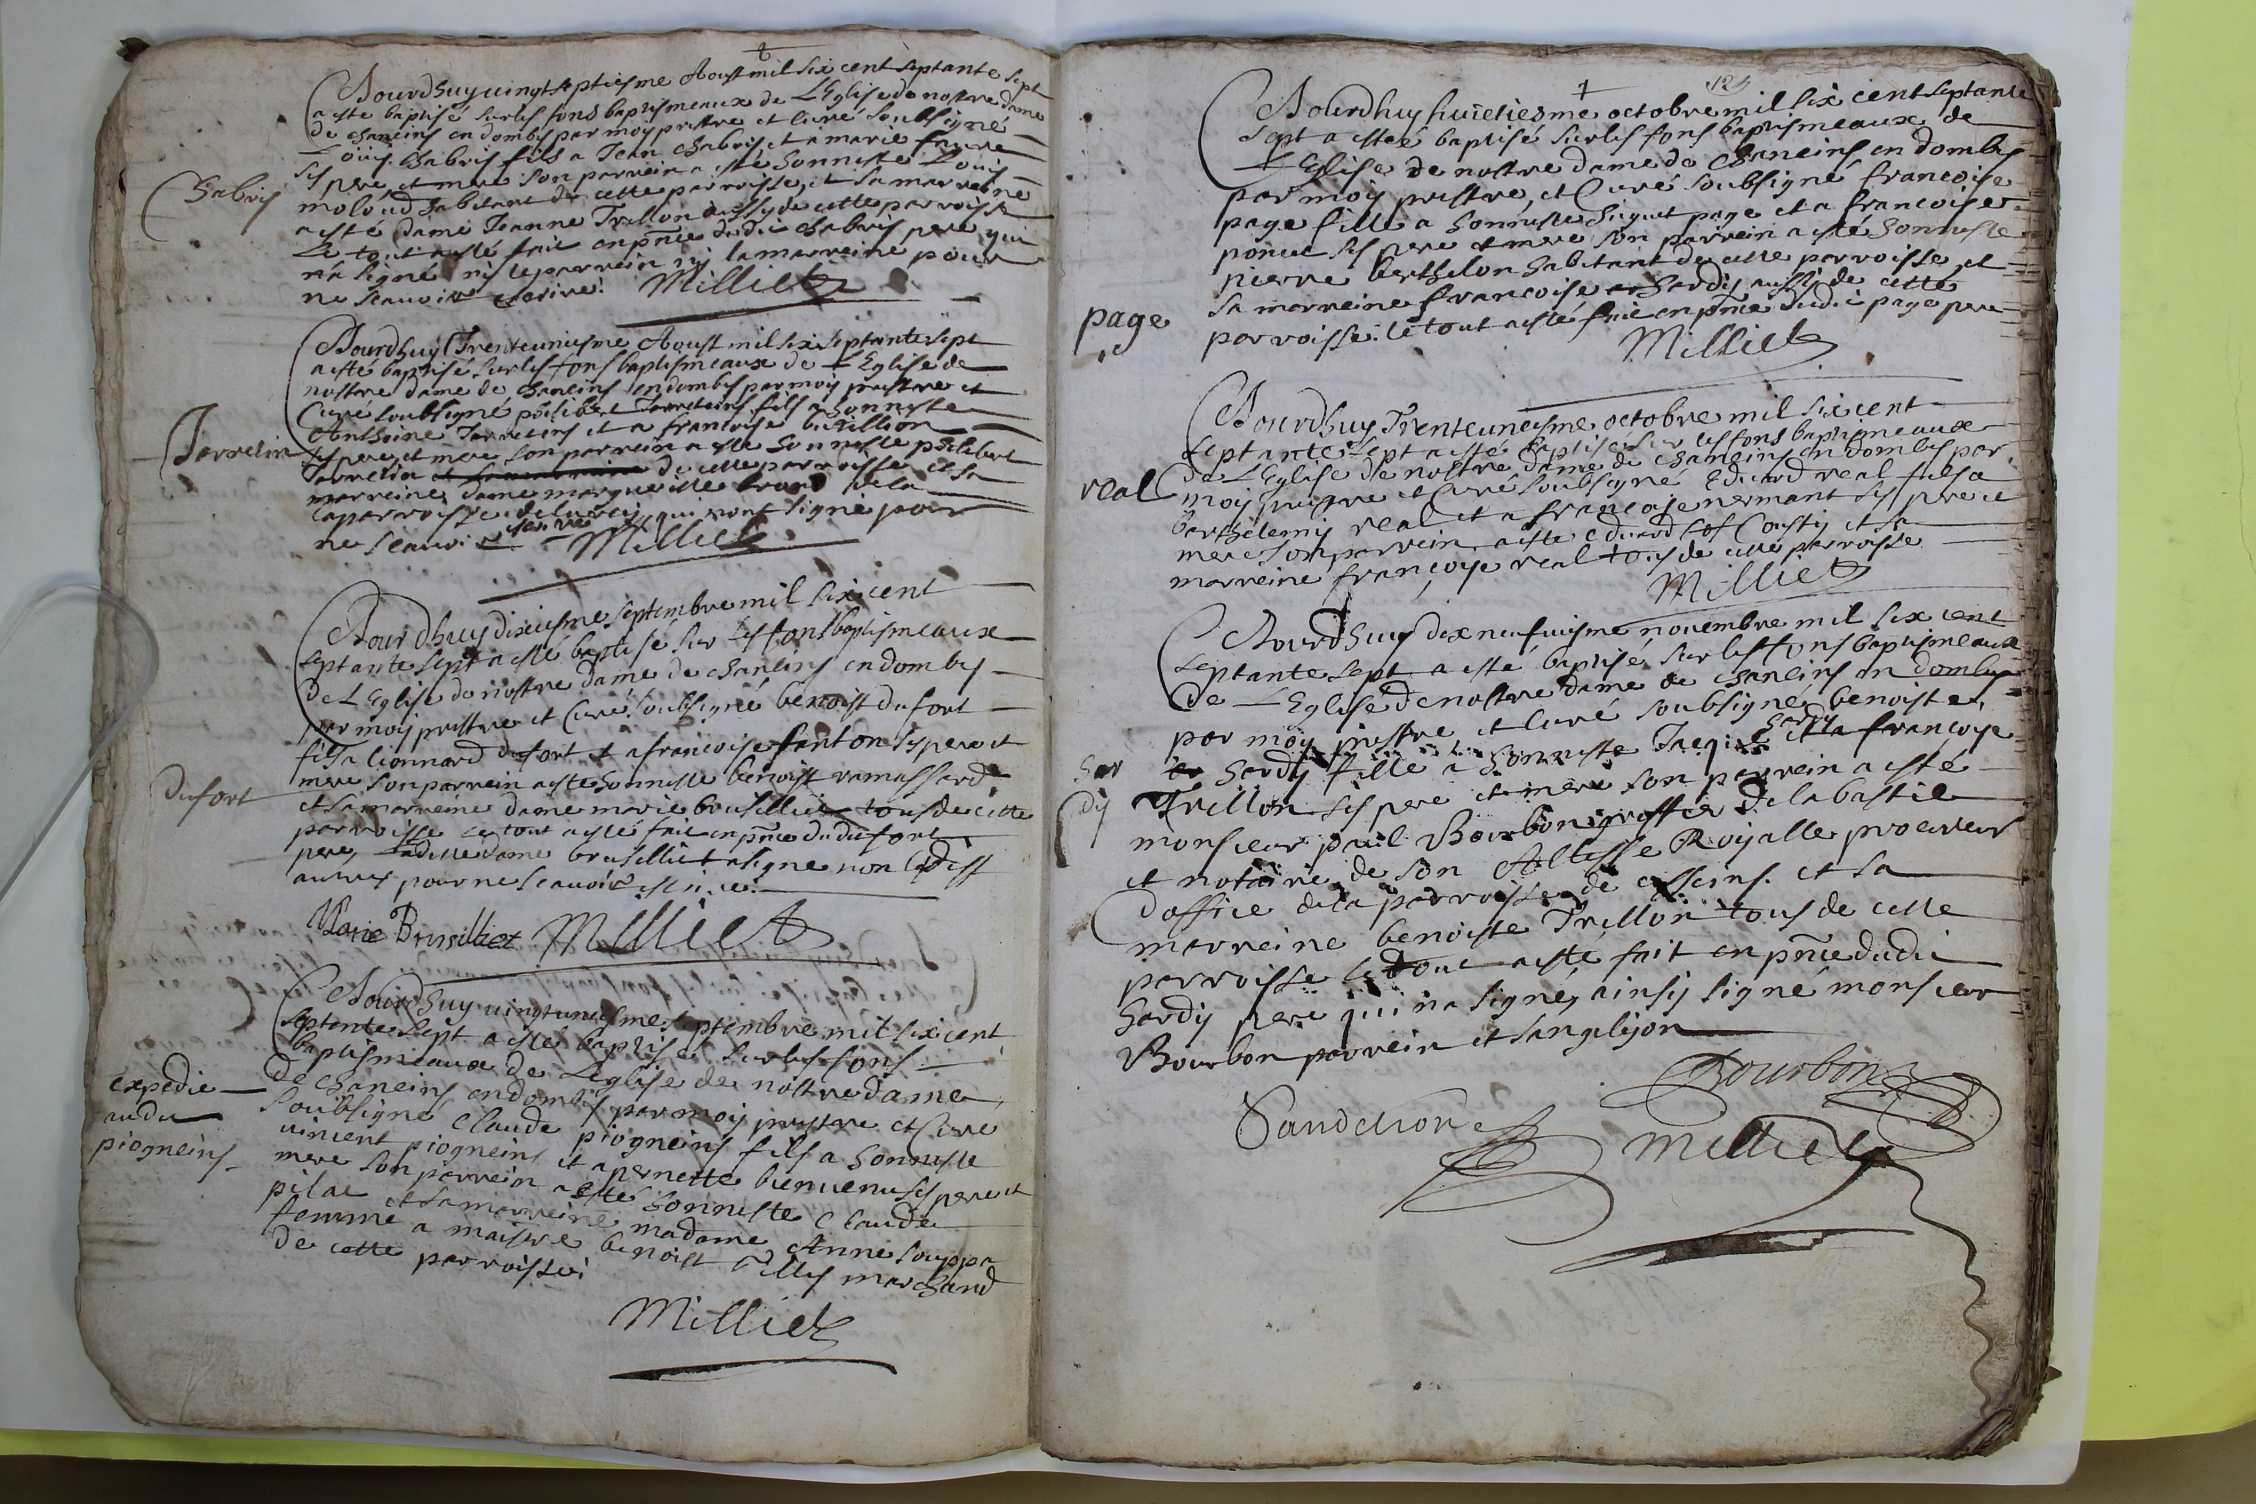 Aourdhuy vingt septiesme Aoust mil six cent septante sept
a esté baptisé sur les fons baptismeaux de L'Eglise de nostre dame
de chaneins en dombes par moy prestre et curé soubsigné
Louis chabris fils a Jean chabris et a marie faure
ses pere et mere son parrein a esté honneste Louis
chabris
molóud habitant de cette parroisse, et sa marreine
a esté dame Jeanne Trellon aussy de cette parroisse
Le tout a esté fait en pñce dudit chabris pere qui
n'a signé ny le parrein ny la marreine pour
ne scauoir escrire. Milliet
Aourdhuy Trenteuniesme Aoust mil six septante sept
a esté baptisé sur les fons baptismeaux de L'Eglise de
nostre dame de chaneins en dombes par moy prestre et
Curé soubsigné philibert Tarreleins fils a honneste
Anthoine Tarreleins et a francoise
Tarrelin
ses pere et mere son parrein a esté honneste philibert
Tarrelin de cette parroisse et sa
marreine dame margueritte de la
parroisse qui n'ont signé pour
ne scauoir escrire Milliet
Aourdhuy dixiesme septembre mil six cent
septante sept a esté baptisé sur les fons baptismeaux
de L'Eglise de nostre dame de chaneins en dombes
par moy prestre et Curé soubsigné benoist dufort
fils a lionnard dufort et a francoise fanton ses pere et
mere son parrein a esté honneste benoist ramassard
dufort
et sa marreine dame marie brusilliet tous de cette
parroisse le tout a esté fait en pñce dudit dufort
pere, ladicte dame brusilliet a signé non lesdits
autres pour ne scauoir escrire.
Marie Brusilliet Milliet
Aourdhuy vingtuniesme septembre mil six cent
septante sept a esté baptisé sur les fons
baptismeaux de L'eglise de nostre dame
de chaneins en dombes par moy prestre et Curé
expedie
audit
piogneins
soubsigné Claude piogneins fils a honneste
vincent piogneins et a pernette bienuenu ses pere et
mere son parrein a esté honneste Claude
pilat et sa marreine madame Anne souppa
femme a maistre benoist Tillis marchand
de cette parroisse.
Milliet
124
Aourdhuy huictiesme octobre mil six cent septante
sept a esteé baptisé sur les fons baptismeaux de
L'Eglise de nostre dame de chaneins en dombes
par moy prestre, et Curé soubsigné francoise
page fille a honneste huguet page et a francoise
poncet ses pere et mere son parrein a esté honneste
pierre berthelon habitant de cette parroisse, et
sa marreine francoise hardy aussy de cette
page
parroisse. le tout a esté fait en pñce dudit page pere
Milliet
Aourdhuy Trenteuniesme octobre mil six cent
septante sept a esté baptisé sur les fons baptismeaux
de L'Eglise de nostre dame de chaneins en dombes par
real
moy prestre et Curé soubsigné Eduard real fils a
barthelemy real et a francoise nermant ses pere et
mere son parrein a esté eduard Cousty et sa
marreine francoyse real tous de cette parroisse
Milliet
Aourdhuy dix neufuiesme nouembre mil six cent
septante sept a esté baptisé sur les fons baptismeaux
de L'Eglise de nostre dame de chaneins en dombes
par moy prestre et Curé soubsigné benoiste
har
dy
hardy fille a honneste Jaques hardy et a francoyse
Trellon ses pere et mere son parrein a esté
monsieur paul Bourbon greffier de la bastie
et notaire de son Altesse Royalle procureur
d'office de la parroisse de cesseins. et sa
marreine benoiste Trellon tous de cette
parroisse le tout a esté fait en pñce dudit
hardy pere qui n'a signé, ainsy signé monsieur
Bourbon parrein et sangelyon
Bourbon
Sandelion Milliet